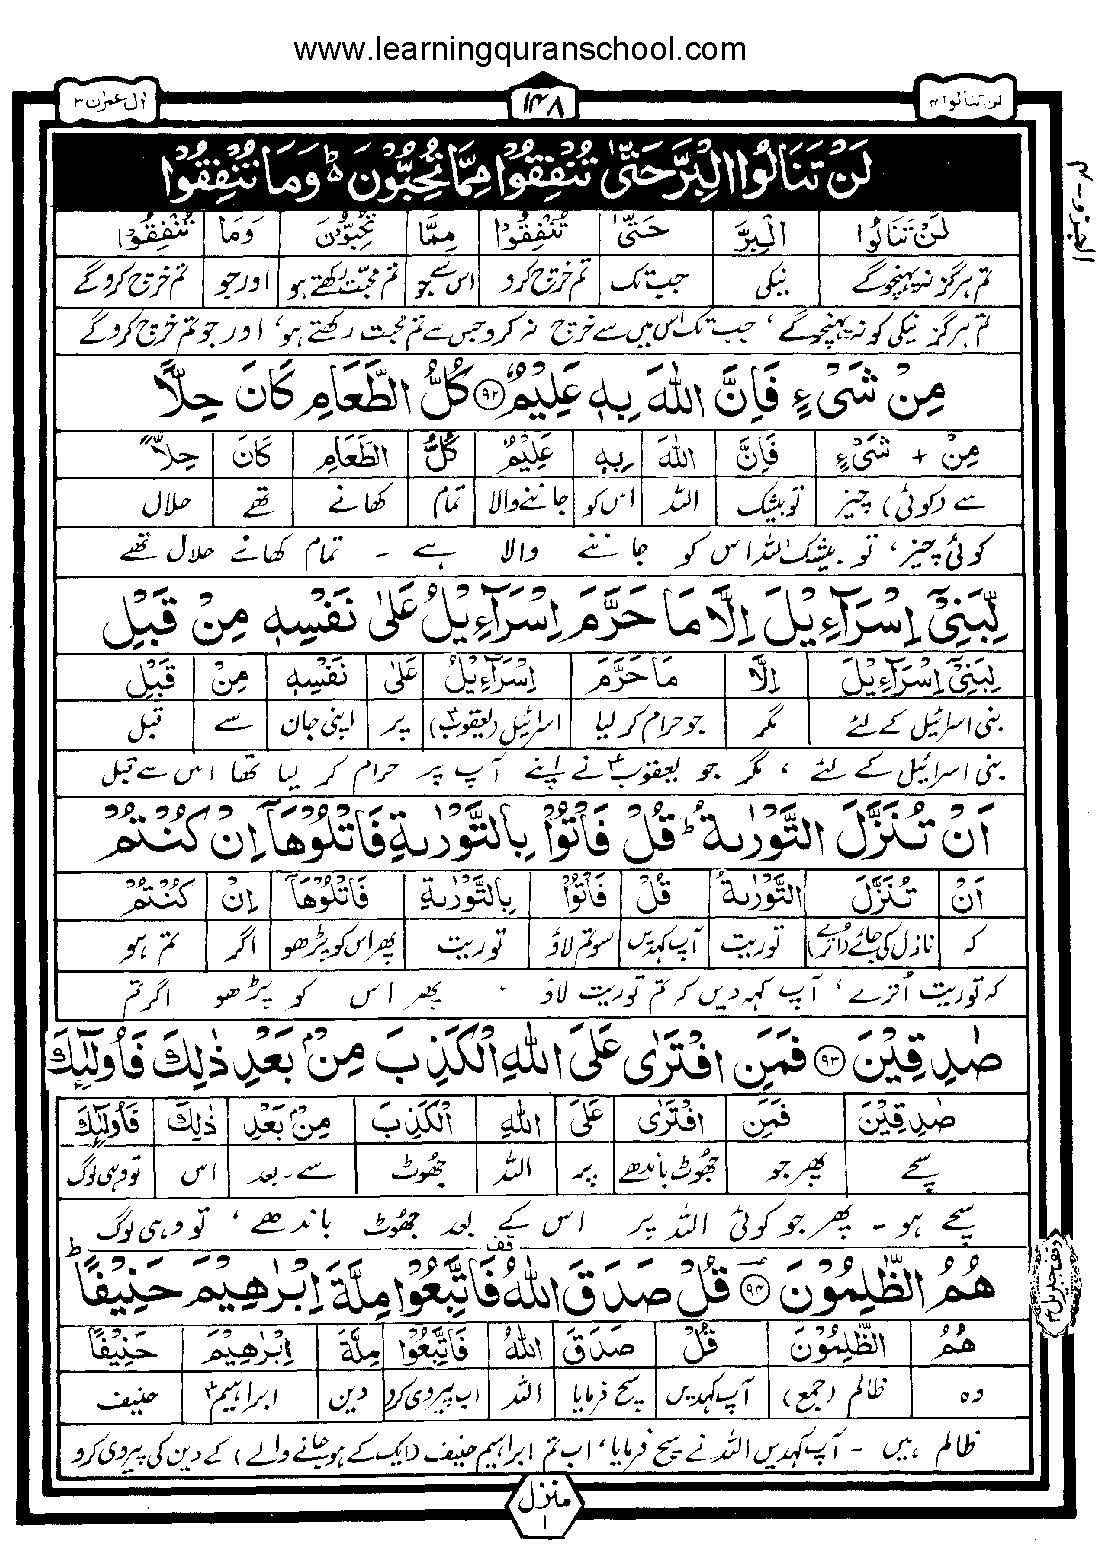 www.learningquranschool.com
اٰل عمرٰن ۳
۱۴۸
لن تنالوا ۴
الجزو - ۴
لَنْ تَنَالُوا الْبِرَّ حَتّٰى تُنْفِقُوْا مِمَّا تُحِبُّوْنَ ؕ۬ وَمَا تُنْفِقُوْا
لَنْ تَنَالُوا الْبِرَّ حَتّٰى تُنْفِقُوْا مِمَّا تُحِبُّوْنَ وَمَا تُنْفِقُوْا
تم ہرگز نہ پہنچو گے نیکی جب تک تم خرچ کرو اس سے جو تم محبت رکھتے ہو اور جو تم خرچ کرو گے
تم ہرگز نیکی کو نہ پہنچو گے، جب تک اس میں سے خرچ نہ کرو جس سے تم محبت رکھتے ہو، اور جو تم خرچ کرو گے
مِنْ شَىْءٍ فَاِنَّ اللّٰهَ بِهٖ عَلِيْمٌ ۹۲ كُلُّ الطَّعَامِ كَانَ حِلًّا
مِنْ + شَىْءٍ فَاِنَّ اللّٰهَ بِهٖ عَلِيْمٌ كُلُّ الطَّعَامِ كَانَ حِلًّا
سے (کوئی) چیز تو بیشک اللہ اس کو جاننے والا تمام کھانے تھے حلال
کوئی چیز، تو بیشک اللہ اس کو جاننے والا ہے - تمام کھانے حلال تھے
لِّبَنِىْٓ اِسْرَآءِيْلَ اِلَّا مَا حَرَّمَ اِسْرَآءِيْلُ عَلٰى نَفْسِهٖ مِنْ قَبْلِ
لِبَنِىْٓ اِسْرَآءِيْلَ اِلَّا مَا حَرَّمَ اِسْرَآءِيْلُ عَلٰى نَفْسِهٖ مِنْ قَبْلِ
بنی اسرائیل کے لئے مگر جو حرام کر لیا اسرائیل (یعقوبؑ) پر اپنی جان سے قبل
بنی اسرائیل کے لئے، مگر جو یعقوبؑ نے اپنے آپ پر حرام کر لیا تھا اس سے قبل
اَنْ تُنَزَّلَ التَّوْرٰىةُ ؕ قُلْ فَاْتُوْا بِالتَّوْرٰىةِ فَاتْلُوْهَآ اِنْ كُنْتُمْ
اَنْ تُنَزَّلَ التَّوْرٰىةُ قُلْ فَاْتُوْا بِالتَّوْرٰىةِ فَاتْلُوْهَآ اِنْ كُنْتُمْ
کہ نازل کی جائے (اترے) توریت آپ کہدیں سو تم لاؤ توریت پھر اس کو پڑھو اگر تم ہو
کہ توریت اُترے، آپ کہہ دیں کہ تم توریت لاؤ پھر اس کو پڑھو اگر تم
صٰدِقِيْنَ ۹۳ فَمَنِ افْتَرٰى عَلَى اللّٰهِ الْكَذِبَ مِنْۢ بَعْدِ ذٰلِكَ فَاُولٰٓئِكَ
صٰدِقِيْنَ فَمَنِ افْتَرٰى عَلَى اللّٰهِ الْكَذِبَ مِنْۢ بَعْدِ ذٰلِكَ فَاُولٰٓئِكَ
سچے پھر جو جھوٹ باندھے پر اللہ جھوٹ سے۔ بعد اس تو وہی لوگ
سچے ہو - پھر جو کوئی اللہ پر اس کے بعد جھوٹ باندھے، تو وہی لوگ
هُمُ الظّٰلِمُوْنَ ۹۴ قُلْ صَدَقَ اللّٰهُ قف فَاتَّبِعُوْا مِلَّةَ اِبْرٰهِيْمَ حَنِيْفًا ؕ
هُمُ الظّٰلِمُوْنَ قُلْ صَدَقَ اللّٰهُ فَاتَّبِعُوْا مِلَّةَ اِبْرٰهِيْمَ حَنِيْفًا
وہ ظالم (جمع) آپ کہدیں سچ فرمایا اللہ اب پیروی کرو دین ابراہیمؑ حنیف
ظالم ہیں - آپ کہدیں اللہ نے سچ فرمایا، اب تم ابراہیم حنیف (ایک کے ہو جانے والے) کے دین کی پیروی کرو
منزل ۱